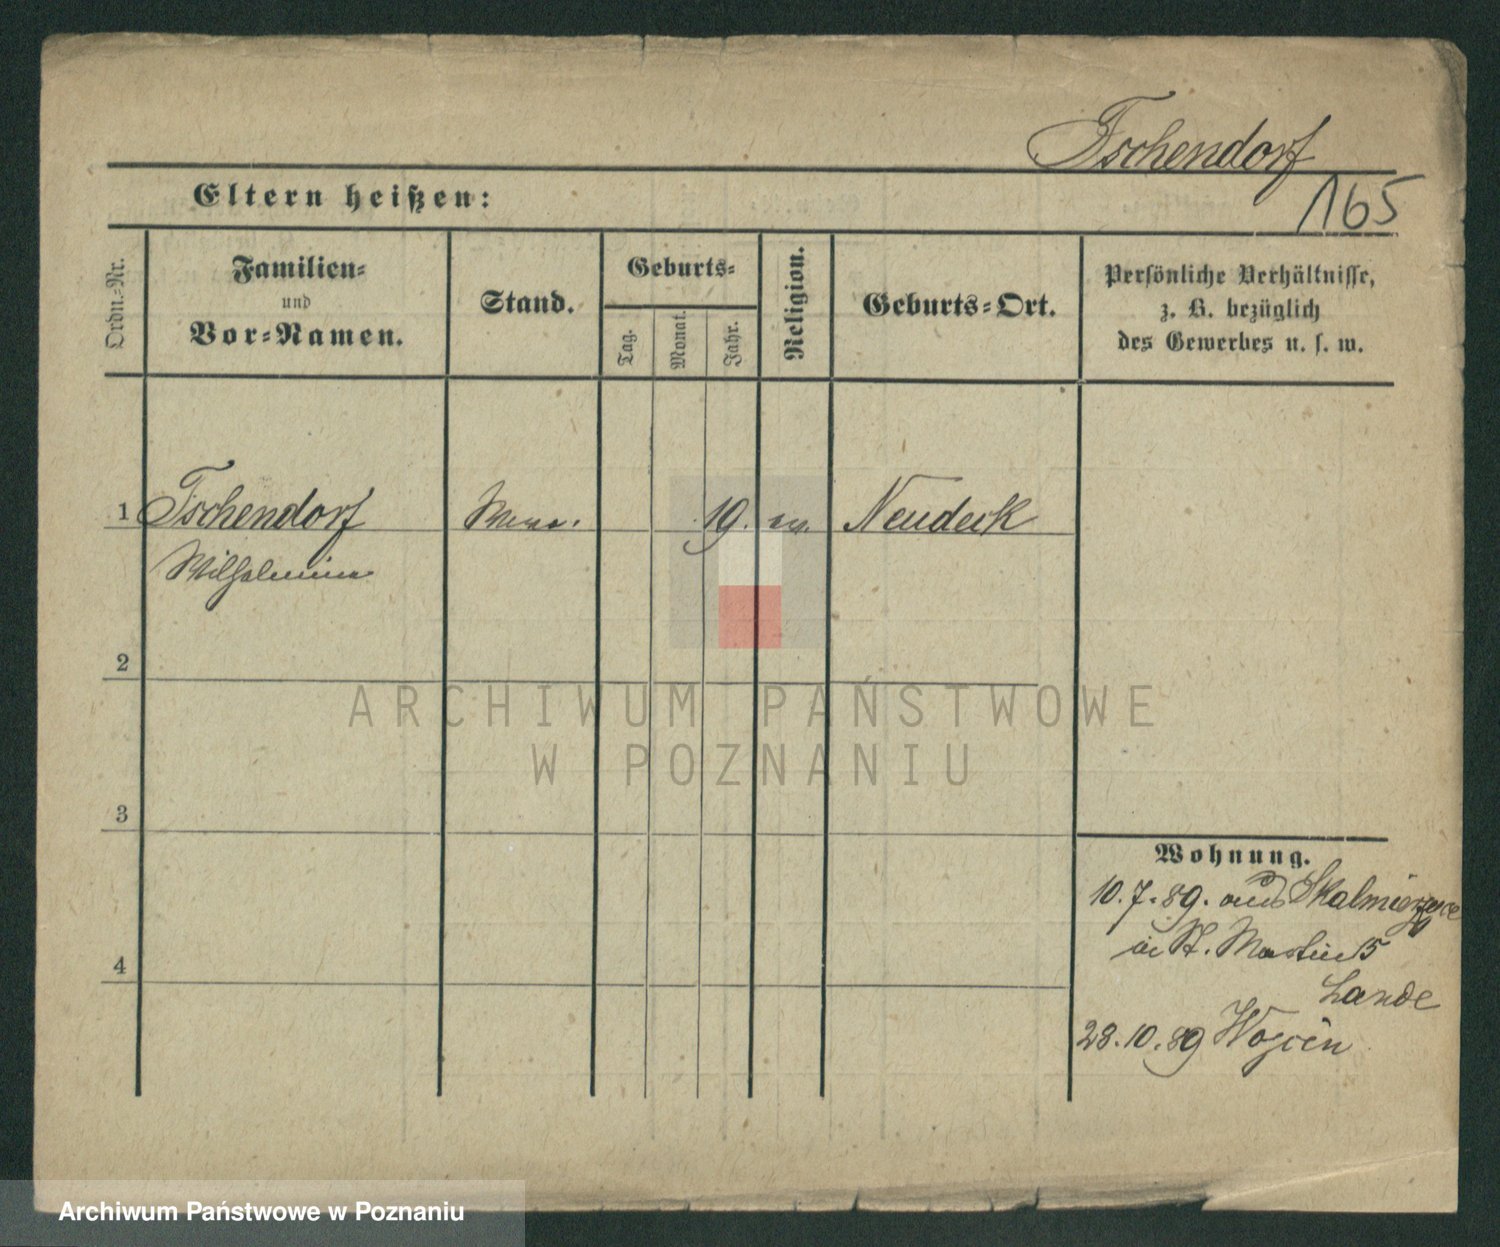 Tschendorf
165
Eltern heißen:
Ordn.-Nr.
Familien-
und
Vor-Namen.
Stand.
Geburts-
Tag.
Monat.
Jahr.
Religion.
Geburts-Ort.
Persönliche Verhältnisse,
z. B. bezüglich
des Gewerbes u. s. w.
1 Tschendorf 19. ev. Neudeck
Wilhelmine
2
3
4
Wohnung.
10.7.89. aus Skalmierzyce
in St. Martin 15
Lande
28.10.89
ARCHIWUM PAŃSTWOWE
W POZNANIU
Archiwum Państwowe w Poznaniu